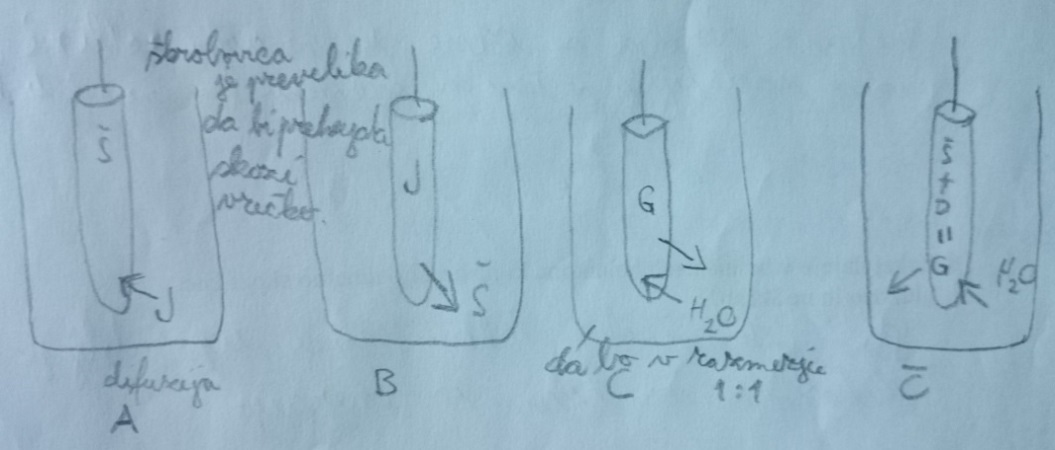 škrobovica
je prevelika
da bi prehajala
skozi
vrečko.
Š
J
difuzija
A
J
Š
B
G
H₂O
da bo v razmerju
1:1
C
Š
+
D
=
G
H₂O
Č